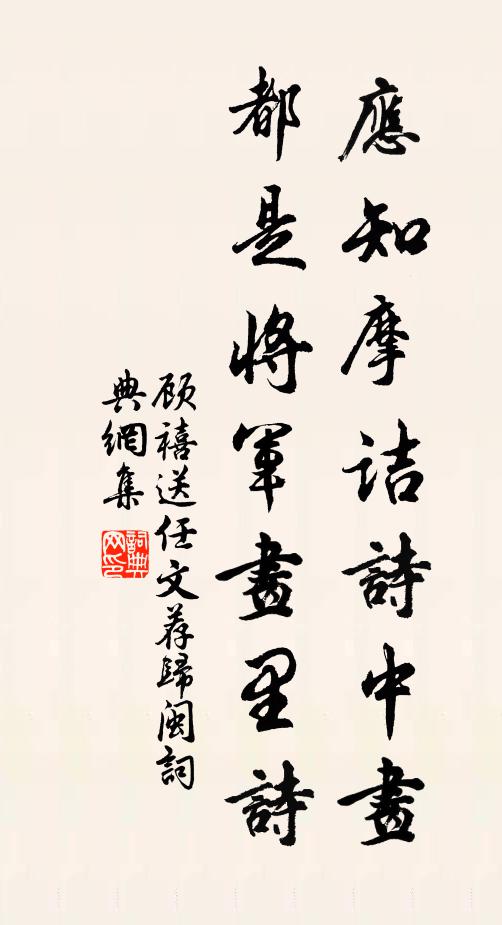 應知摩詰詩中畫
都是將軍畫里詩
顧禧送任文荐歸閩詞
典網集
詞典
网印